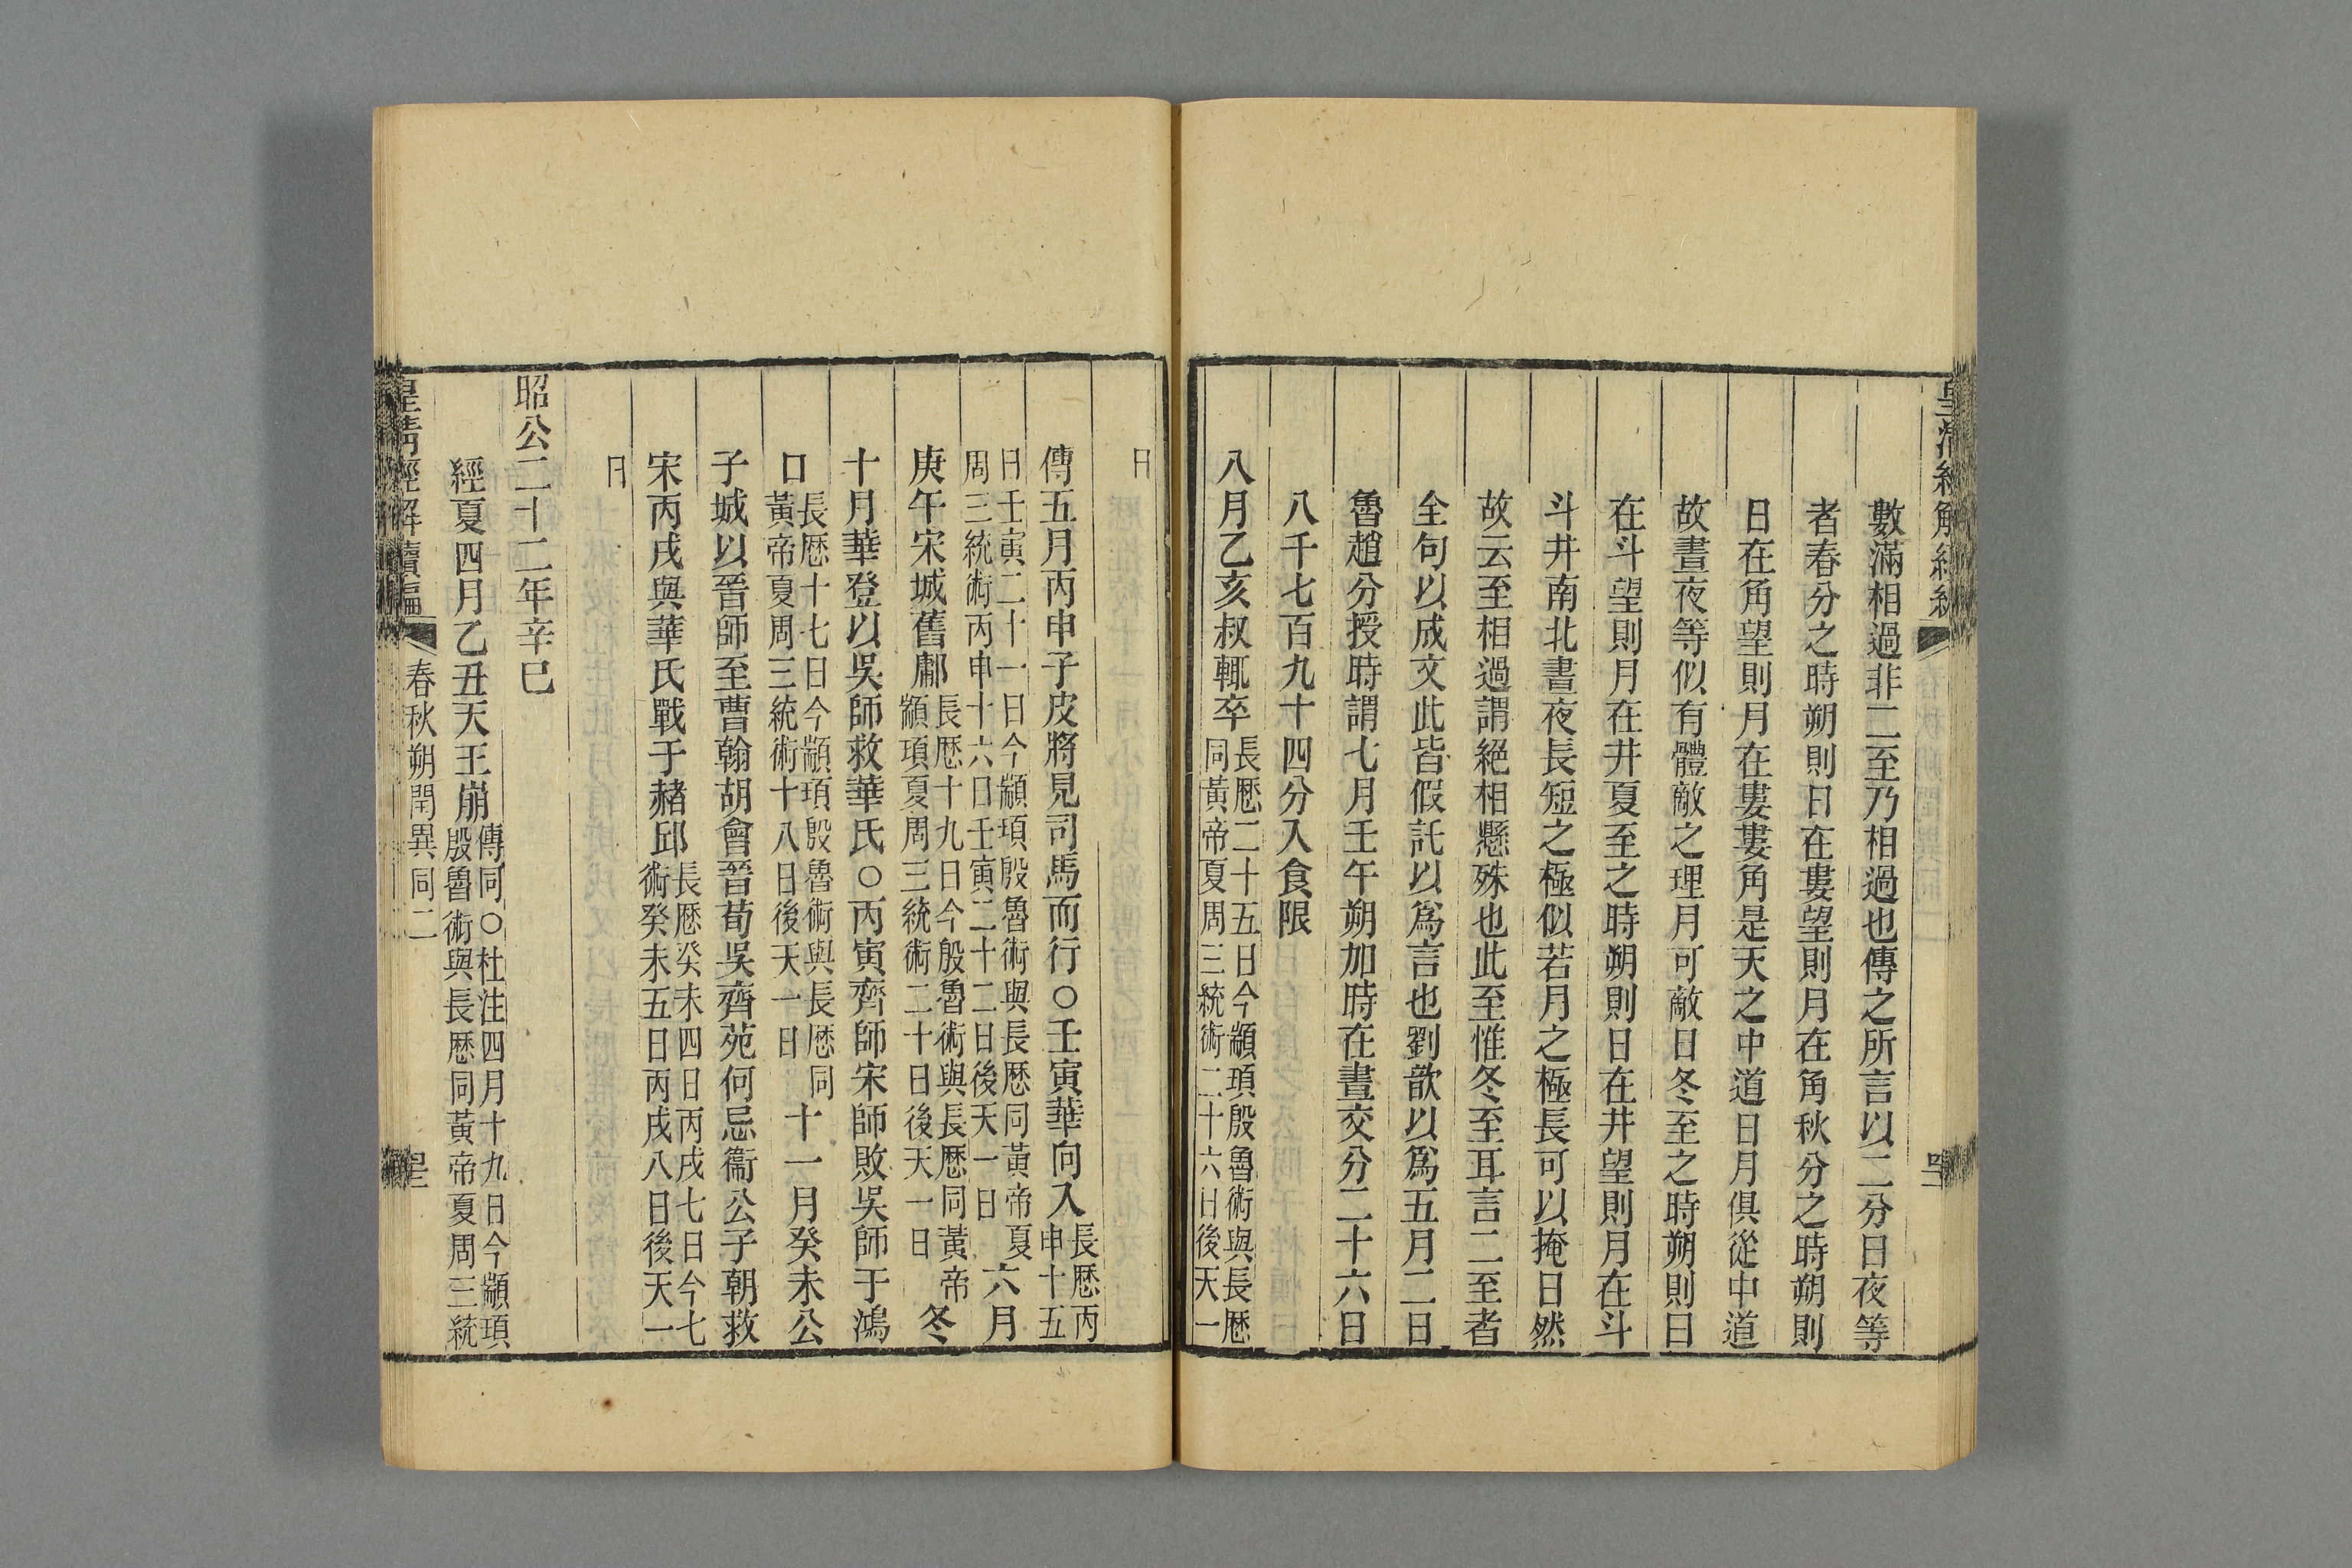 數滿相過非二至乃相過也傳之所言以二分日夜等
者春分之時朔則日在婁望則月在角秋分之時朔則
日在角望則月在婁婁角是天之中道日月俱從中道
故晝夜等似有體敵之理月可敵日冬至之時朔則日
在斗望則月在井夏至之時朔則日在井望則月在斗
斗井南北晝夜長短之極似若月之極長可以掩日然
故云至相過謂絕相懸殊也此至惟冬至耳言二至者
全句以成文此皆假託以爲言也劉歆以爲五月二日
魯趙分授時謂七月壬午朔加時在晝交分二十六日
八千七百九十四分入食限
八月乙亥叔輒卒長厯二十五日今顓頊殷魯術與長厯同黃帝夏周三統術二十六日後天一
日
傳五月丙申子皮將見司馬而行○壬寅華向入長厯丙申十五
日壬寅二十一日今顓頊殷魯術與長厯同黃帝夏周三統術丙申十六日壬寅二十二日後天一日六月
庚午宋城舊鄘長厯十九日今殷魯術與長厯同黃帝顓頊夏周三統術二十日後天一日冬
十月華登以吳師救華氏○丙寅齊師宋師敗吳師于鴻
口長厯十七日今顓頊殷魯術與長厯同黃帝夏周三統術十八日後天一日十一月癸未公
子城以晉師至曹翰胡會晉荀吳齊苑何忌衞公子朝救
宋丙戌與華氏戰于赭邱長厯癸未四日丙戌七日今七術癸未五日丙戌八日後天一
日
昭公二十二年辛巳
經夏四月乙丑天王崩傳同○杜注四月十九日今顓頊殷魯術與長厯同黃帝夏周三統
皇清經解續編
春秋朔閏異同二